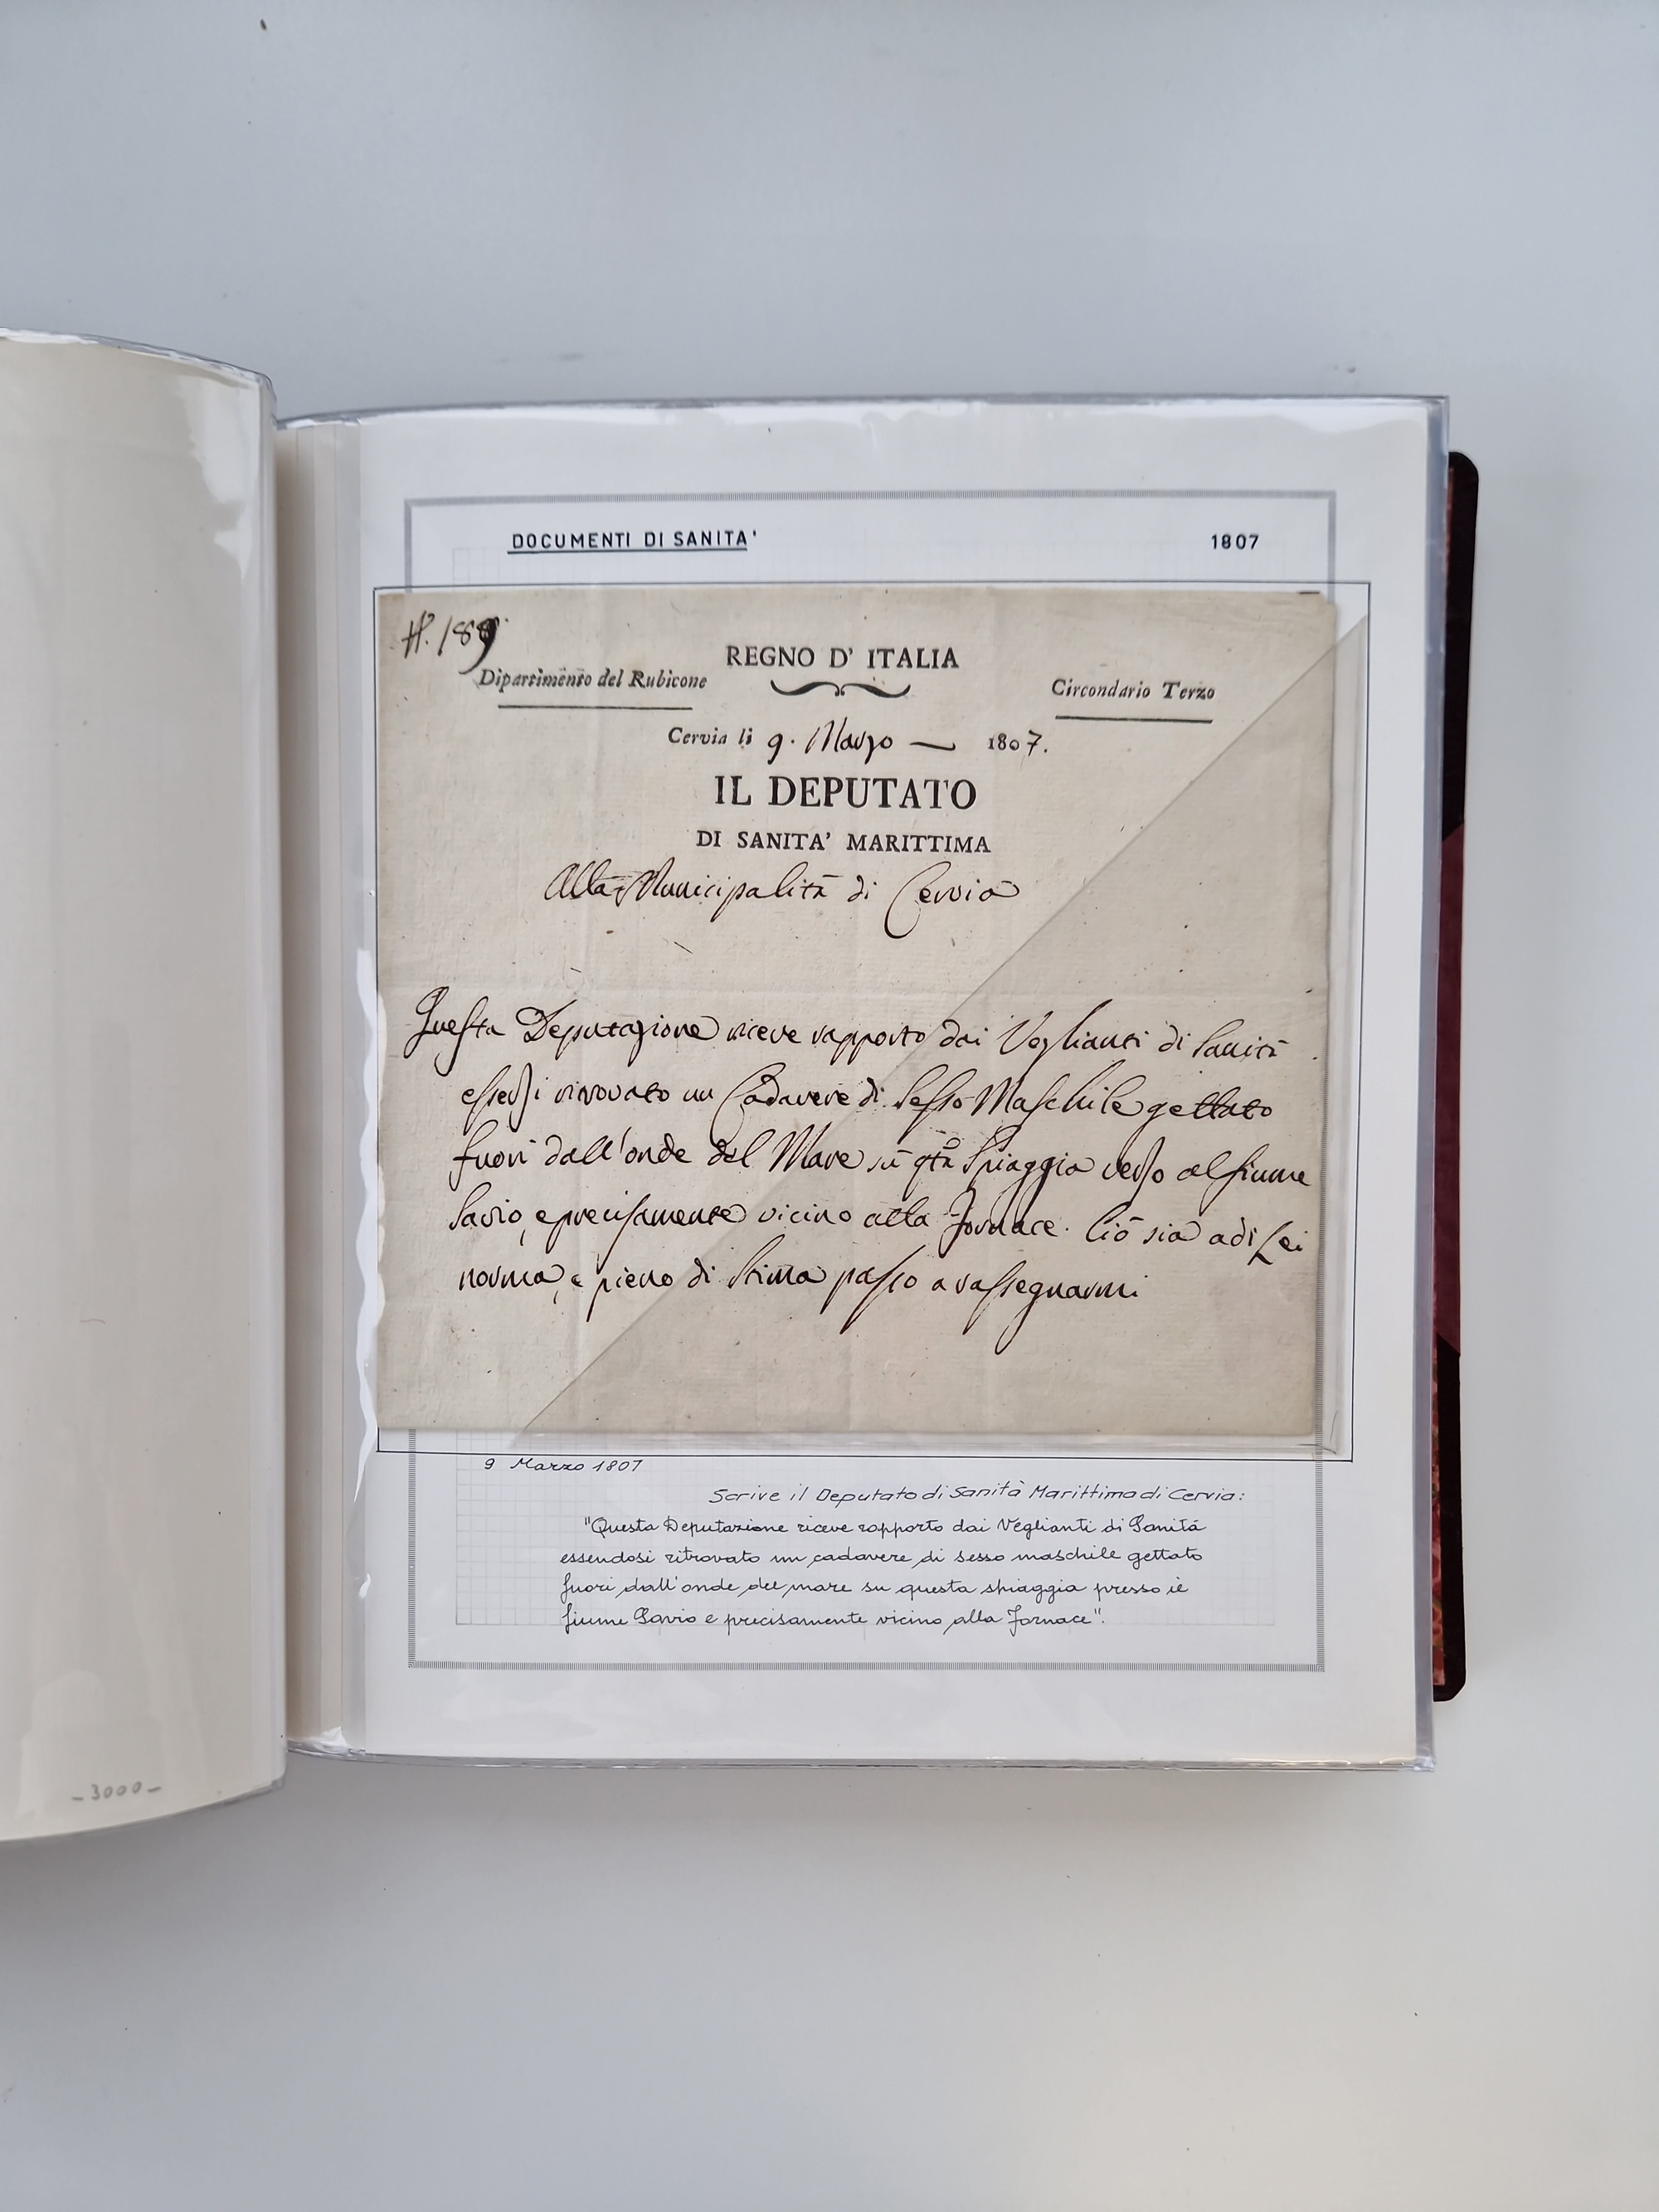 DOCUMENTI DI SANITA' 1807
N. 189
REGNO D' ITALIA
Dipartimento del Rubicone
Circondario Terzo
Cervia li 9. Marzo — 1807.
IL DEPUTATO
DI SANITA' MARITTIMA
Alla Municipalità di Cervia
Questa Deputazione riceve rapporto dai Veglianti di Sanità
essersi rinovato un Cadavere di Sesso Maschile gettato
fuori dall'onde del Mare sù qta Spiaggia verso al fiume
Savio, e precisamente vicino alla Fornace. Ciò sia a di Lei
norma, e pieno di Stima passo a rassegnarmi
9 Marzo 1807
Scrive il Deputato di Sanità Marittima di Cervia:
"Questa Deputazione riceve rapporto dai Veglianti di Sanità
essendosi ritrovato un cadavere di sesso maschile gettato
fuori dall'onde del mare su questa spiaggia presso il
fiume Savio e precisamente vicino alla Fornace".
-3000-